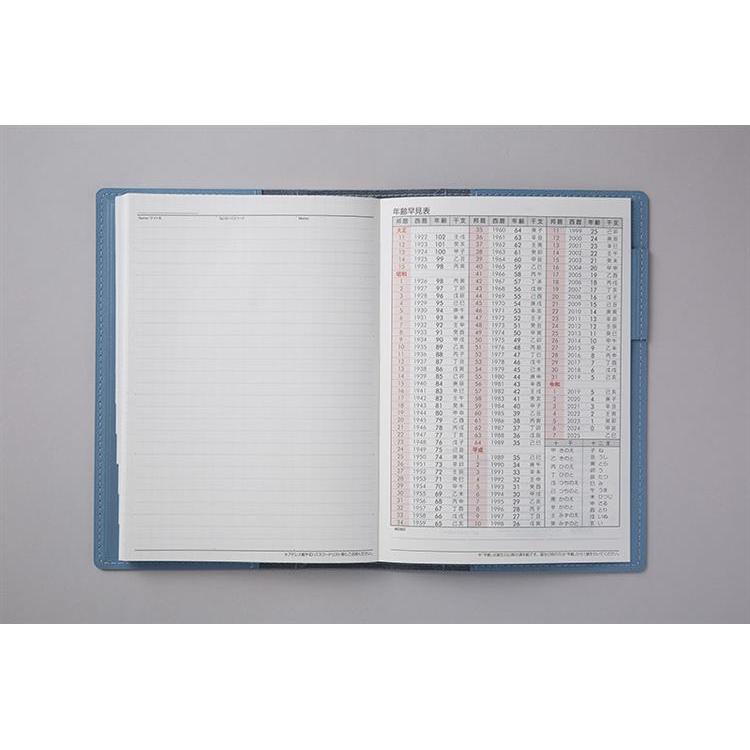 Name/サイト名 Tel/ID・パスワード Memo
※アドレス帳やID/パスワードリスト等にご活用ください。
年齢早見表
邦暦 西暦 年齢 干支
大正
11 1922 102 壬戌
12 1923 101 癸亥
13 1924 100 甲子
14 1925 99 乙丑
15 1926 98 丙寅
昭和
1 1926 98 丙寅
2 1927 97 丁卯
3 1928 96 戊辰
4 1929 95 己巳
5 1930 94 庚午
6 1931 93 辛未
7 1932 92 壬申
8 1933 91 癸酉
9 1934 90 甲戌
10 1935 89 乙亥
11 1936 88 丙子
12 1937 87 丁丑
13 1938 86 戊寅
14 1939 85 己卯
15 1940 84 庚辰
16 1941 83 辛巳
17 1942 82 壬午
18 1943 81 癸未
19 1944 80 甲申
20 1945 79 乙酉
21 1946 78 丙戌
22 1947 77 丁亥
23 1948 76 戊子
24 1949 75 己丑
25 1950 74 庚寅
26 1951 73 辛卯
27 1952 72 壬辰
28 1953 71 癸巳
29 1954 70 甲午
30 1955 69 乙未
31 1956 68 丙申
32 1957 67 丁酉
33 1958 66 戊戌
34 1959 65 己亥
邦暦 西暦 年齢 干支
35 1960 64 庚子
36 1961 63 辛丑
37 1962 62 壬寅
38 1963 61 癸卯
39 1964 60 甲辰
40 1965 59 乙巳
41 1966 58 丙午
42 1967 57 丁未
43 1968 56 戊申
44 1969 55 己酉
45 1970 54 庚戌
46 1971 53 辛亥
47 1972 52 壬子
48 1973 51 癸丑
49 1974 50 甲寅
50 1975 49 乙卯
51 1976 48 丙辰
52 1977 47 丁巳
53 1978 46 戊午
54 1979 45 己未
55 1980 44 庚申
56 1981 43 辛酉
57 1982 42 壬戌
58 1983 41 癸亥
59 1984 40 甲子
60 1985 39 乙丑
61 1986 38 丙寅
62 1987 37 丁卯
63 1988 36 戊辰
64 1989 35 己巳
平成
1 1989 35 己巳
2 1990 34 庚午
3 1991 33 辛未
4 1992 32 壬申
5 1993 31 癸酉
6 1994 30 甲戌
7 1995 29 乙亥
8 1996 28 丙子
9 1997 27 丁丑
10 1998 26 戊寅
邦暦 西暦 年齢 干支
11 1999 25 己卯
12 2000 24 庚辰
13 2001 23 辛巳
14 2002 22 壬午
15 2003 21 癸未
16 2004 20 甲申
17 2005 19 乙酉
18 2006 18 丙戌
19 2007 17 丁亥
20 2008 16 戊子
21 2009 15 己丑
22 2010 14 庚寅
23 2011 13 辛卯
24 2012 12 壬辰
25 2013 11 癸巳
26 2014 10 甲午
27 2015 9 乙未
28 2016 8 丙申
29 2017 7 丁酉
30 2018 6 戊戌
31 2019 5 己亥
令和
1 2019 5 己亥
2 2020 4 庚子
3 2021 3 辛丑
4 2022 2 壬寅
5 2023 1 癸卯
6 2024 0 甲辰
7 2025 乙巳
十干 十二支
甲 きのえ 子 ね
乙 きのと 丑 うし
丙 ひのえ 寅 とら
丁 ひのと 卯 う
戊 つちのえ 辰 たつ
己 つちのと 巳 み
庚 かのえ 午 うま
辛 かのと 未 ひつじ
壬 みずのえ 申 さる
癸 みずのと 酉 とり
戌 いぬ
亥 い
MEMO